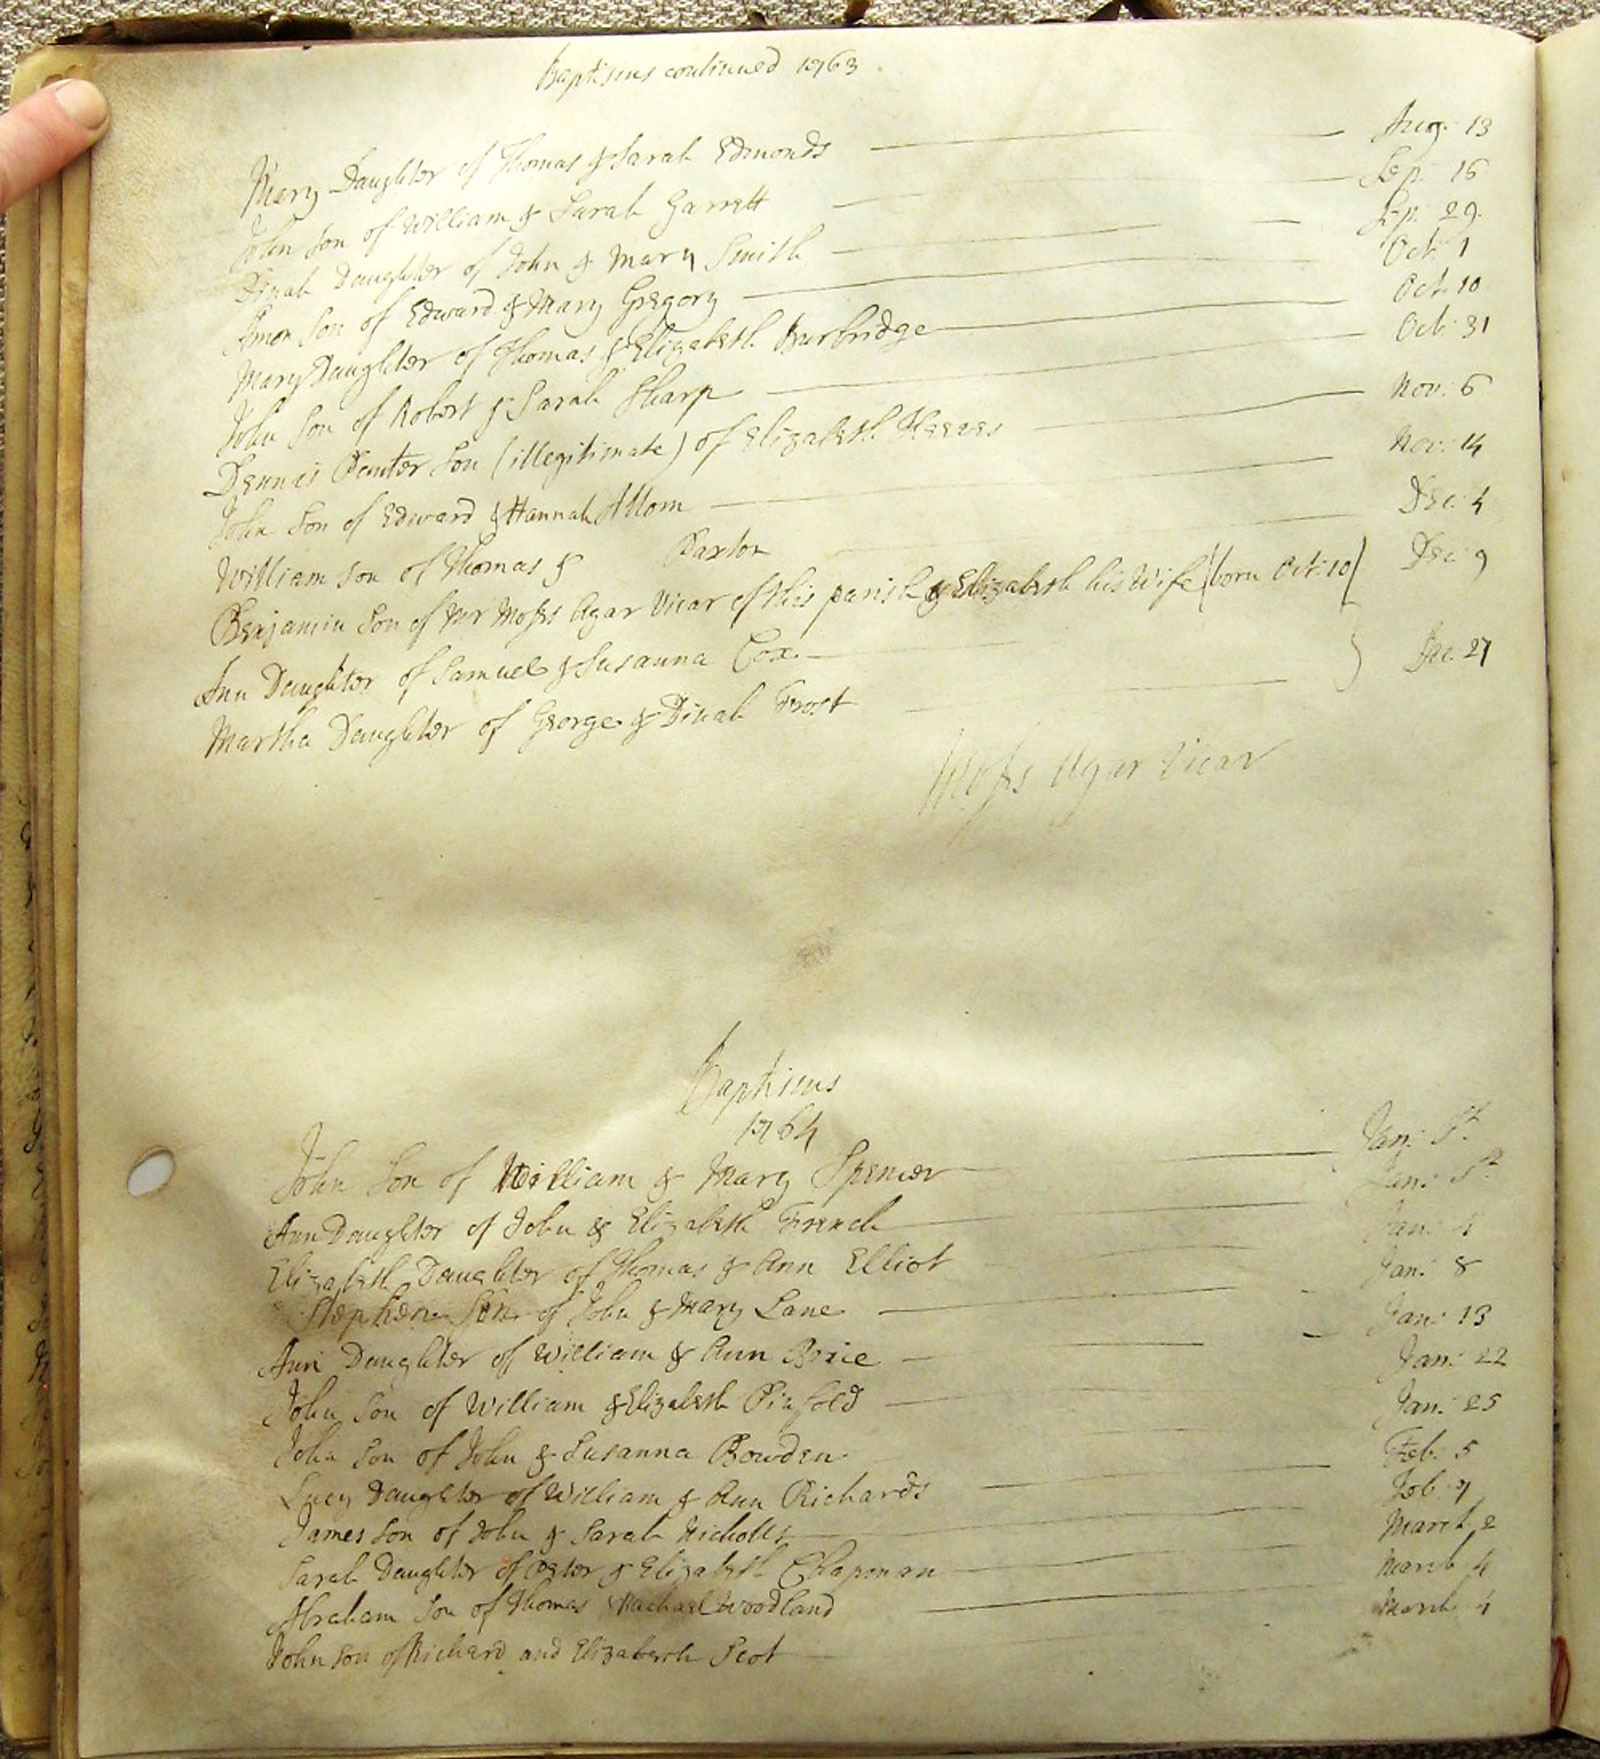 Baptisms continued 1763
Mary Daughter of Thomas & Sarah Edmonds Aug: 13
John Son of William & Sarah Garrett Sep: 16
Dinah Daughter of John & Mary Smith Sep: 29
Amon Son of Edward & Mary Gregory Oct: 1
Mary Daughter of Thomas & Elizabeth Burbridge Oct: 10
John Son of Robert & Sarah Sharp Oct: 31
Dennis Son (illegitimate) of Elizabeth Nov: 6
John Son of Edward & Hannah Nov: 14
William Son of Thomas & Paxton Dec: 4
Benjamin Son of Mr Moses Agar Vicar of this parish & Elizabeth his Wife (born Oct: 10) Dec: 9
Ann Daughter of Samuel & Susanna Cox
Martha Daughter of George & Dinah Frost } Dec: 27
Moses Agar Vicar
Baptisms
1764
John Son of William & Mary Spencer Jan: 1st
Ann Daughter of John & Elizabeth French Jan: 1st
Elizabeth Daughter of Thomas & Ann Elliot Jan:
Stephen Son of John & Mary Lane Jan: 8
Ann Daughter of William & Ann Brice Jan: 13
John Son of William & Elizabeth Pinfold Jan: 22
John Son of John & Susanna Bowden Jan: 25
Lucy Daughter of William & Ann Richards Feb: 5
James Son of John & Sarah Nicholls Feb: 7
Sarah Daughter of Peter & Elizabeth Chapman March 2
Abraham Son of Thomas Rachael Woodland March 4
John Son of Richard and Elizabeth Scot March 4